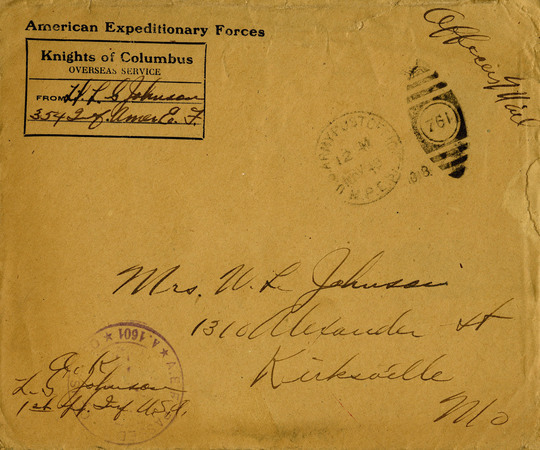 American Expeditionary Forces
Knights of Columbus
OVERSEAS SERVICE
FROM L G Johnson
354 Inf. Amer. E. F.
Officers Mail
ARMY POST OFFICE
12 M
NOV
M.P.E.S.
761
Mrs. W. L. Johnson
1310 Alexander St
Kirksville
Mo
A.E.F.
A.1601
O.K.
L. G. Johnson
1st Lt. Inf. U.S.A.